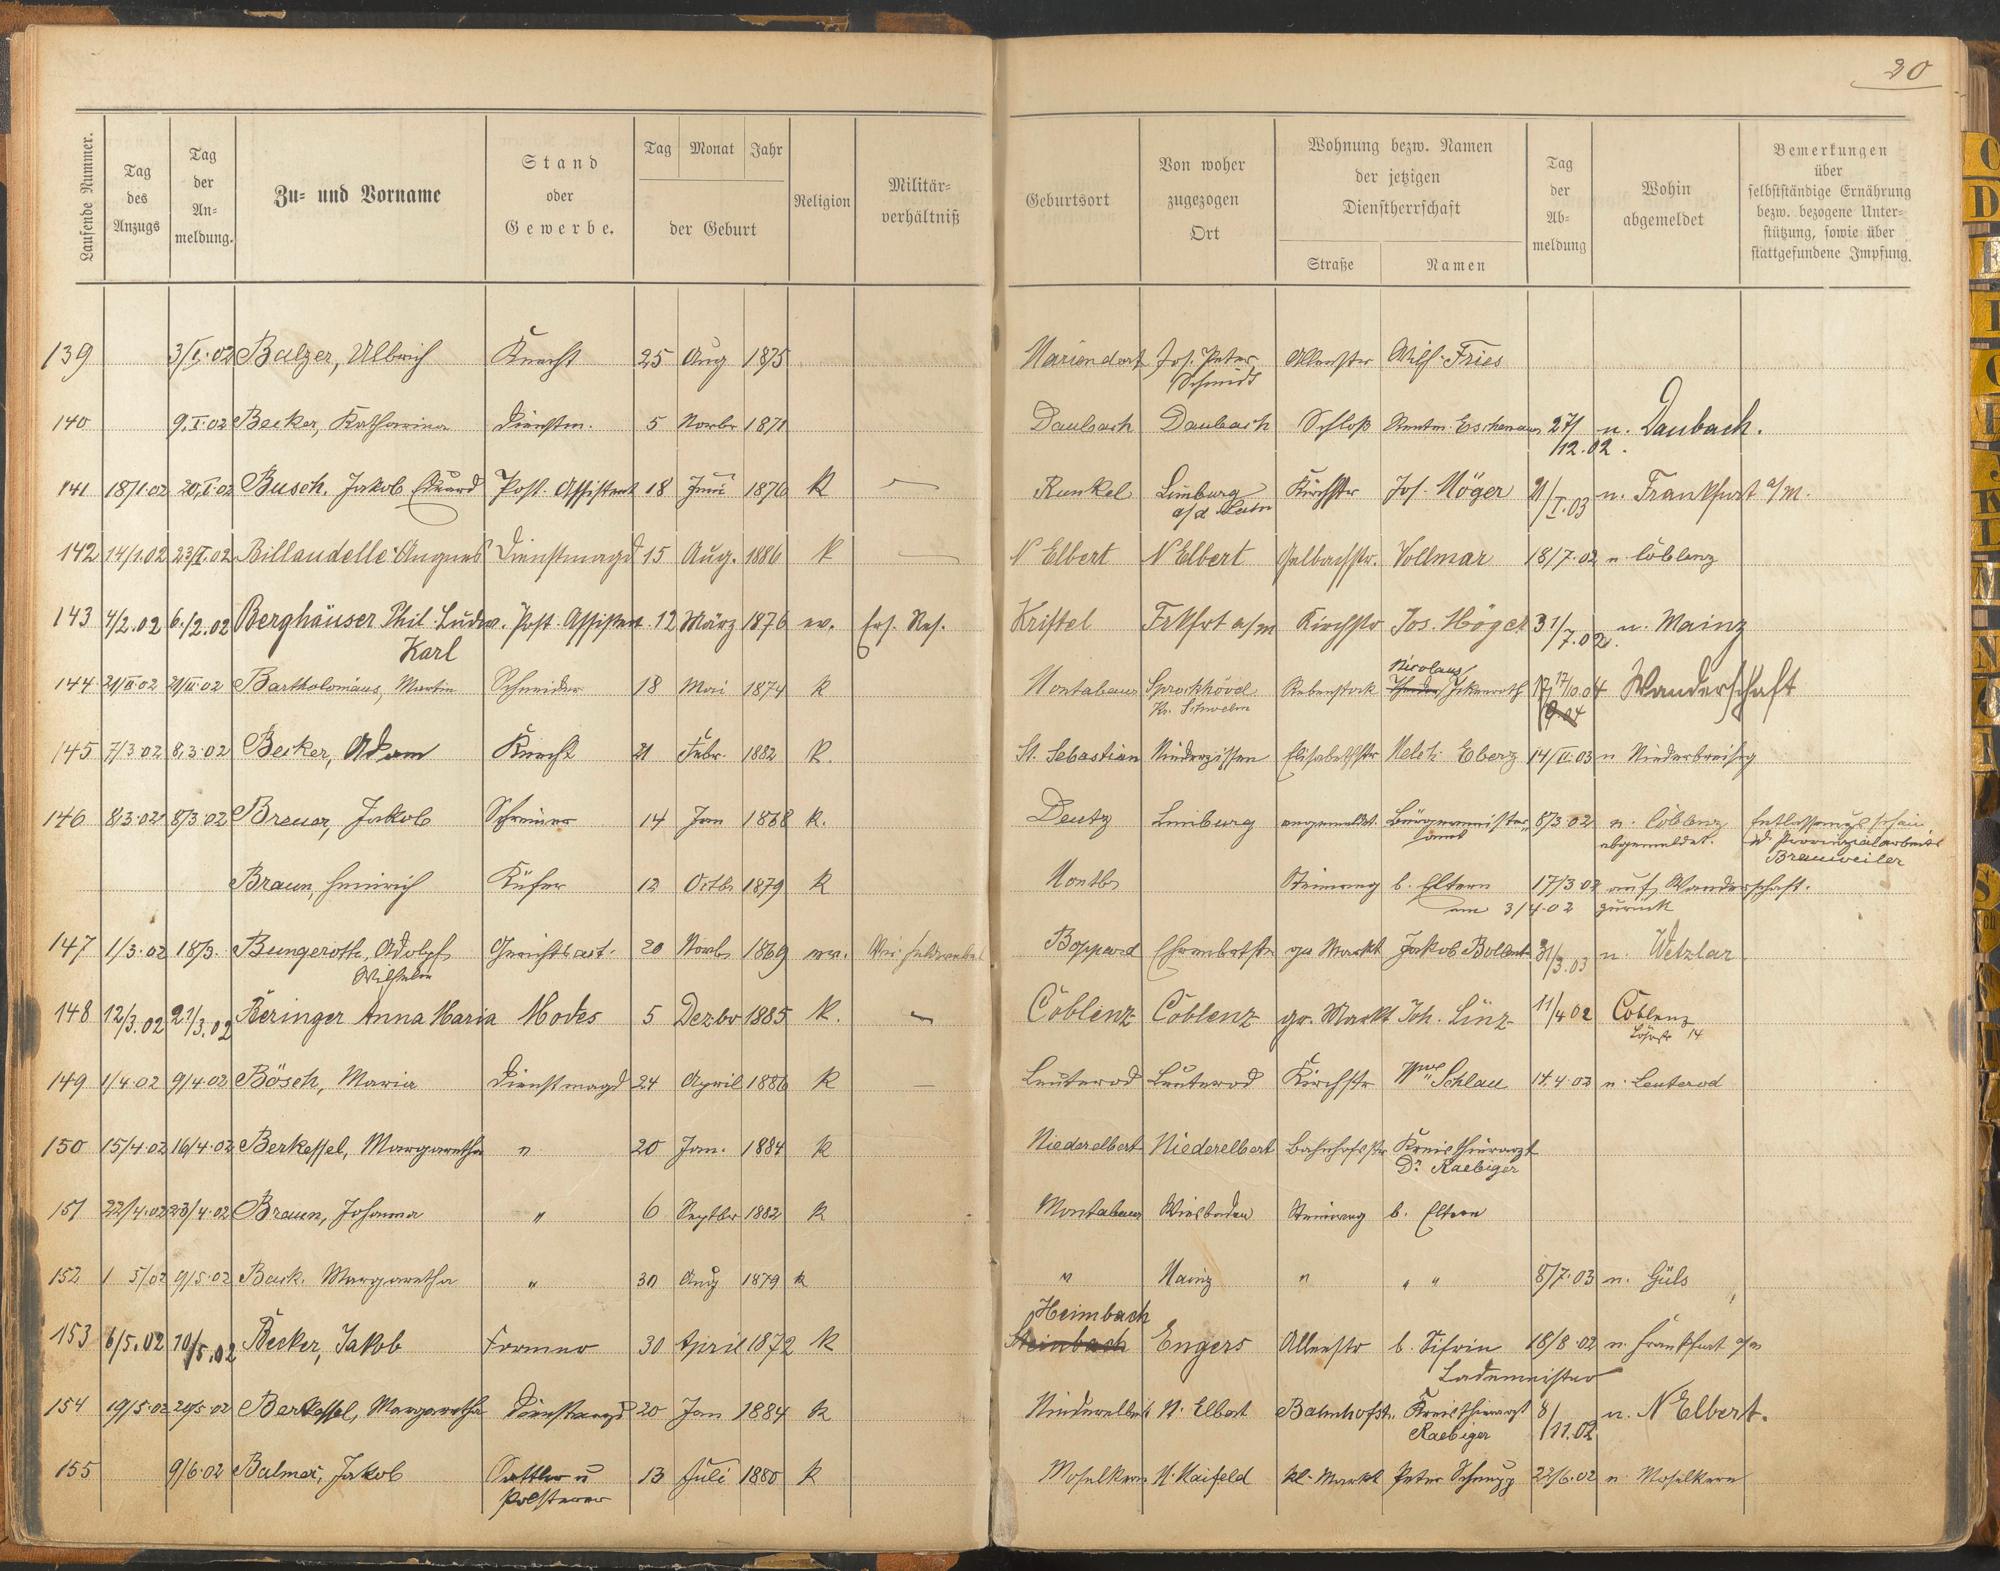 20
Laufende Nummer.
Tag des Anzugs
Tag der An- meldung.
Zu- und Vorname
Stand oder Gewerbe.
Tag Monat Jahr
der Geburt
Religion
Militär- verhältniß
Geburtsort
Von woher zugezogen Ort
Wohnung bezw. Namen der jetzigen Dienstherrschaft
Straße Namen
Tag der Ab- meldung
Wohin abgemeldet
Bemerkungen über selbstständige Ernährung bezw. bezogene Unter- stützung, sowie über stattgefundene Impfung.
139 Balzer, Knecht 25 Aug 1875 Jos. Peter Wilh. Fries
Schmidt
140 9.I.02 Becker, Katharina Dienstm. 5 Novbr 1871 Daubach Daubach Schloß 27/ n. Daubach.
12.02.
141 18/1.02 20.I.02 Busch, Jakob Eduard Post-Assistent 18 Juni 1876 K Runkel Limburg Kirchstr Jos. Höger 21/ n. Frankfurt a/M.
a/d Lahn I.03
142 14/1.02 23/I.02 Billaudelle Angnes Dienstmagd 15 Aug. 1886 K N Elbert N Elbert Gelbachstr. Vollmar 18/7.02 n. Coblenz
143 4/2.02 6./2.02 Berghäuser Phil. Ludw. Post-Assisten 12 März 1876 ev. Ers. Res. Kristel Frkfrt a/m Kirchstr Jos. Höger 31/ n. Mainz
Karl 7.02.
Nicolaus
144 21/II.02 21/II.02 Bartholomäus, Martin Schneider 18 Mai 1874 K Montabaur Sprockhövel Rebenstock 17/10.04 Wanderschaft
Kr. Schwelm
145 7/3.02 8.3.02 Becker, Adam Knecht 21 Febr. 1882 K. St. Sebastian Niederzissen Elisabethstr Melch. Eberz 14/II.03 n Niederbreisig
146 8.3.02 8/3.02 Breuer, Jakob Schreiner 14 Jan 1868 K. Deutz Limburg angemeldet. Bürgermeister- 8/3.02 n. Coblenz Entlassungsschein
amt abgemeldet. d. Provinzialarbeits
Brauweiler
Braun, Heinrich Küfer 12 Octbr 1879 K Montb Steinweg b. Eltern 17/3.02 auf Wanderschaft.
am 3/4.02 zurück
147 1/3.02 18/3. Bungeroth, Adolf Gerichtsact. 20 Novbr 1869 ev. Boppard gr Markt Jakob 31/3.03 n. Wetzlar
Wilhelm
148 12/3.02 21/3.02 Beringer Anna Maria Modes 5 Dezbr 1885 K. Coblenz Coblenz gr. Markt Joh. Linz 11/4 02 Coblenz
Löhrstr 14
149 1/4.02 9/4.02 Bösch, Maria Dienstmagd 24 April 1886 K Leuterod Leuterod Kirchstr Wwe Schlau 14.4.02 n. Leuterod
150 15/4.02 16/4.02 Berkessel, Margaretha " 20 Jan. 1884 K Niederelbert Niederelbert Bahnhofstr Kreisthierarzt
Dr Raebiger
151 22/4.02 23/4.02 Braun, Johanna " 6 Septbr 1882 K Montabaur Wiesbaden Steinweg b. Eltern
152 1 5/02 9/5.02 Back. Margaretha " 30 Aug 1879 K " Mainz " " " 8/7.03 n. Güls
Heimbach
153 6/5.02 10/5.02 Becker, Jakob Former 30 April 1872 K Steinbach Engers Alleestr b. Sifrin 18/8.02 n. Frankfurt a/m
Lademeister
154 19/5.02 20/5.02 Berkessel, Margaretha Dienstmagd 20 Jan 1884 K Niederelbert N. Elbert Bahnhofstr. Kreisthierarzt 8/ n. N Elbert.
Raebiger 11.02
155 9/6.02 Balmer, Jakob Sattler u 13 Juli 1880 K Moselkern M. Maifeld kl. Markt Peter Schnupp 22/6.02 n Moselkern
Polsterer